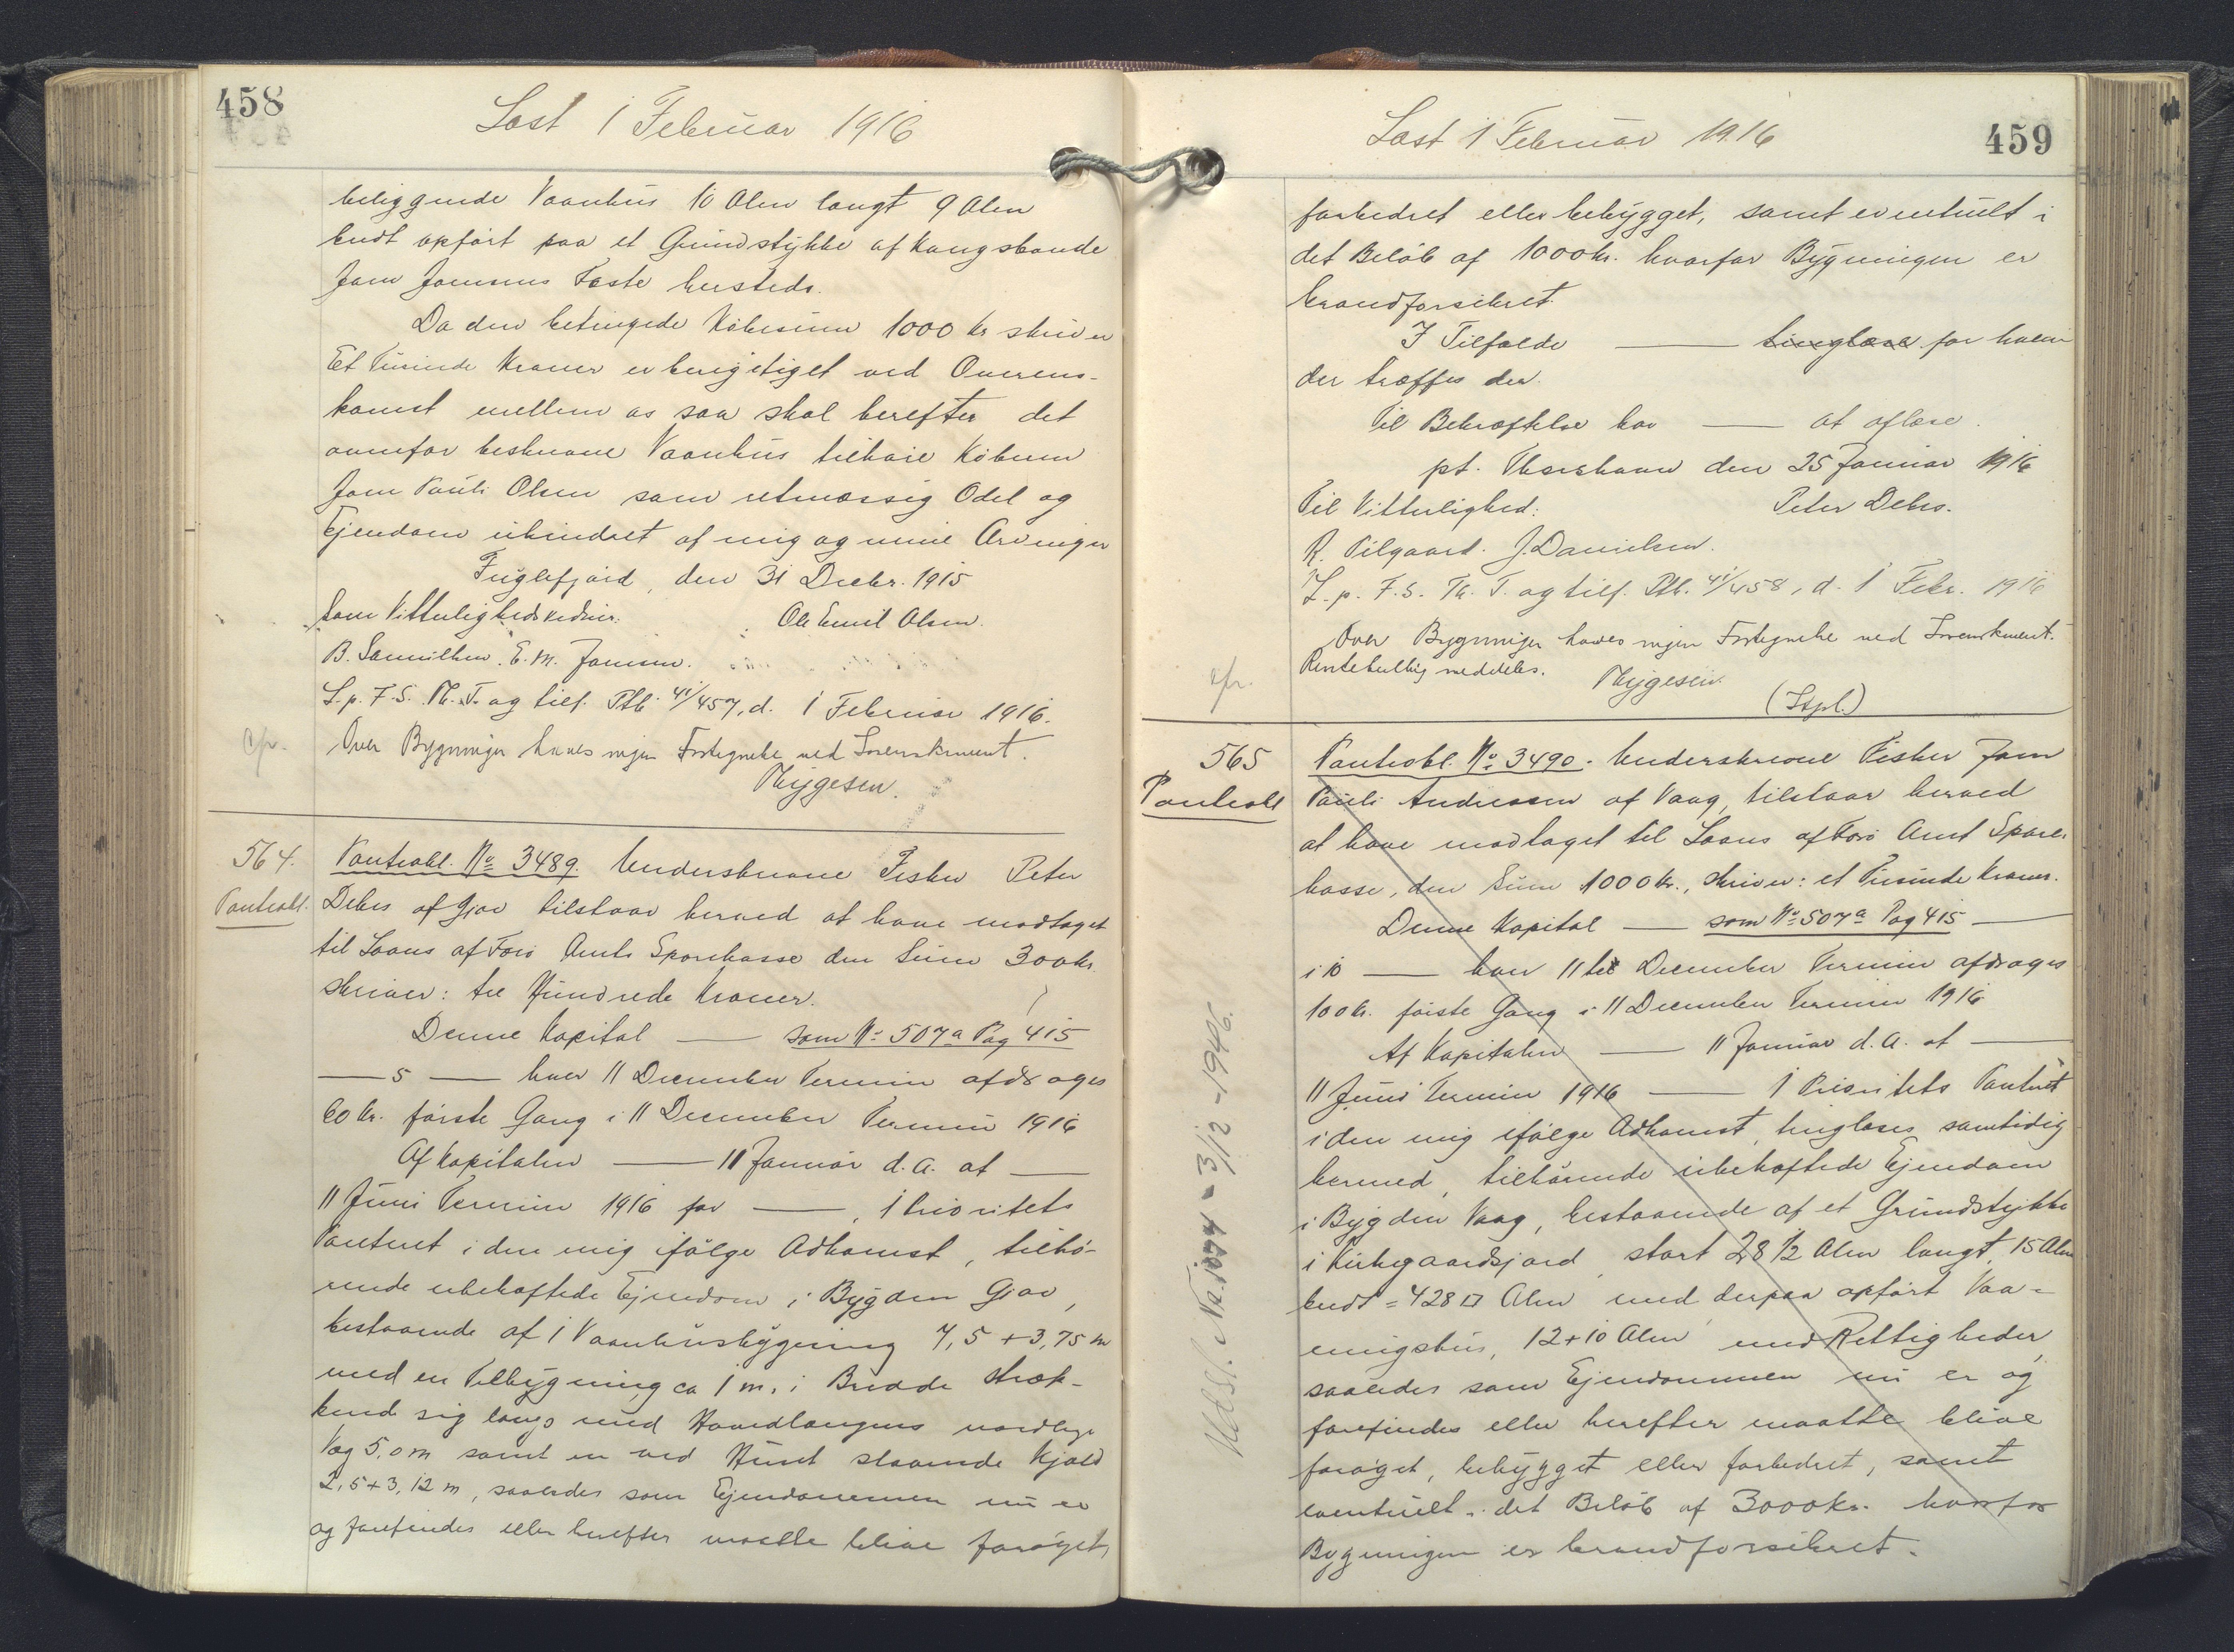 458
Læst 1 Februar 1916
beliggende Vaanhus 10 Alen langt 9 Alen
bredt opført paa et Grundstykke af Kongsbonde
Joen Joensens Fæste hersteds.
Da den betingede Købesum 1000 Kr skriver
Et Tusinde Kroner er berigtiget ved Overens-
komst mellem os saa skal herefter det
ovenfor beskrevne Vaanhus tilhøre Køberen
Joen Pauli Olsen som retmæssig Odel og
Ejendom uhindret af mig og mine Arvinger
Fuglefjord, den 31 Decbr. 1915
Som Vitterlighedsvidner: Ole Emil Olsen.
B. Samuelsen. E. M. Joensen.
L. p. F. S. Th. T. og tilf. Ptb. 41/457, d. 1 Februar 1916.
cfr. Over Bygninger haves ingen Fortegnelse ved Sorenskriveriet.
Thygesen.
564. Panteobl. No 3489. Undersknevne Fisker Peter
Panteobl. Debes af Gjov tilstaar herved at have modtaget
til Laans af Færø Amts Sparekasse den Sum 300 kr.
skriver: tre Hundrede Kroner.
Denne Kapital — som No 507a Pag 415
— 5 — hver 11 December Termin afdrages
60 Kr. første Gang i 11 December Termin 1916
Af Kapitalen — 11 Januar d. A. at —
11 Juni Termin 1916 for — , 1 Prioritets
Panteret i den mig ifølge Adkomst, tilhø-
rende ubehæftede Ejendom i Bygden Gjov,
bestaaende af 1 Vaanhusbygning 7,5 + 3,75 m
med en Tilbygning ca 1 m. i Bredde stræk-
kende sig langs med Hovedlængens nordlige
Væg 5,0 m samt en ved Huset staaende Hjald
2,5 + 3,12 m, saaledes som Ejendommen nu er
og forefindes eller herefter maatte blive forøget,
459
Læst 1 Februar 1916
forbedret eller bebygget, samt eventuelt i
det Beløb af 1000 kr. hvorfor Bygningen er
brandforsikret.
I Tilfælde — tinglæse for hvem
der træffes der.
Til Bekræftelse har — at aflæse.
pt. Thorshavn den 25 Januar 1916
Til Vitterlighed: Peter Debes.
R. Pilgaard. J. Danielsen.
L. p. F. S. Th. T. og tilf. Ptb. 41/458, d. 1 Febr. 1916
Over Bygninger haves ingen Fortegnelse ved Sorenskriveriet.
cfr. meddeles. Thygesen.
(Stpl.)
565 Panteobl. No 3490. Underskrevne Fisker Joen
Panteobl Pauli Andreasen af Vaag, tilstaar herved
at have modtaget til Laans af Færø Amt Spare-
kasse, den Sum 1000 Kr., skriver: et Tusinde Kroner.
Denne Kapital — som No 507a Pag 415 —
i 10 — hver 11te December Termin afdrages
100 Kr. første Gang i 11 December Termin 1916
Af Kapitalen — 11 Januar d. A. at —
11 Juni Termin 1916 — 1 Prioritets Panteret
i den mig ifølge Adkomst, tinglæses samtidig
hermed, tilhørende ubehæftede Ejendom
i Bygden Vaag, bestaaende af et Grundstykke
i Kirkegaardsjord, stort 28 1/2 Alen langt, 15 Alen
bredt = 428 □ Alen med derpaa opført Vaa-
ningshus, 12 + 10 Alen med Rettigheder,
saaledes som Ejendommen nu er og
forefindes eller herefter maatte blive
forøget, bebygget eller forbedret, samt
eventuelt i det Beløb af 3000 kr. hvorfor
Bygningen er brandforsikret.
Udsl. No. 1074 - 3/12 - 1946.